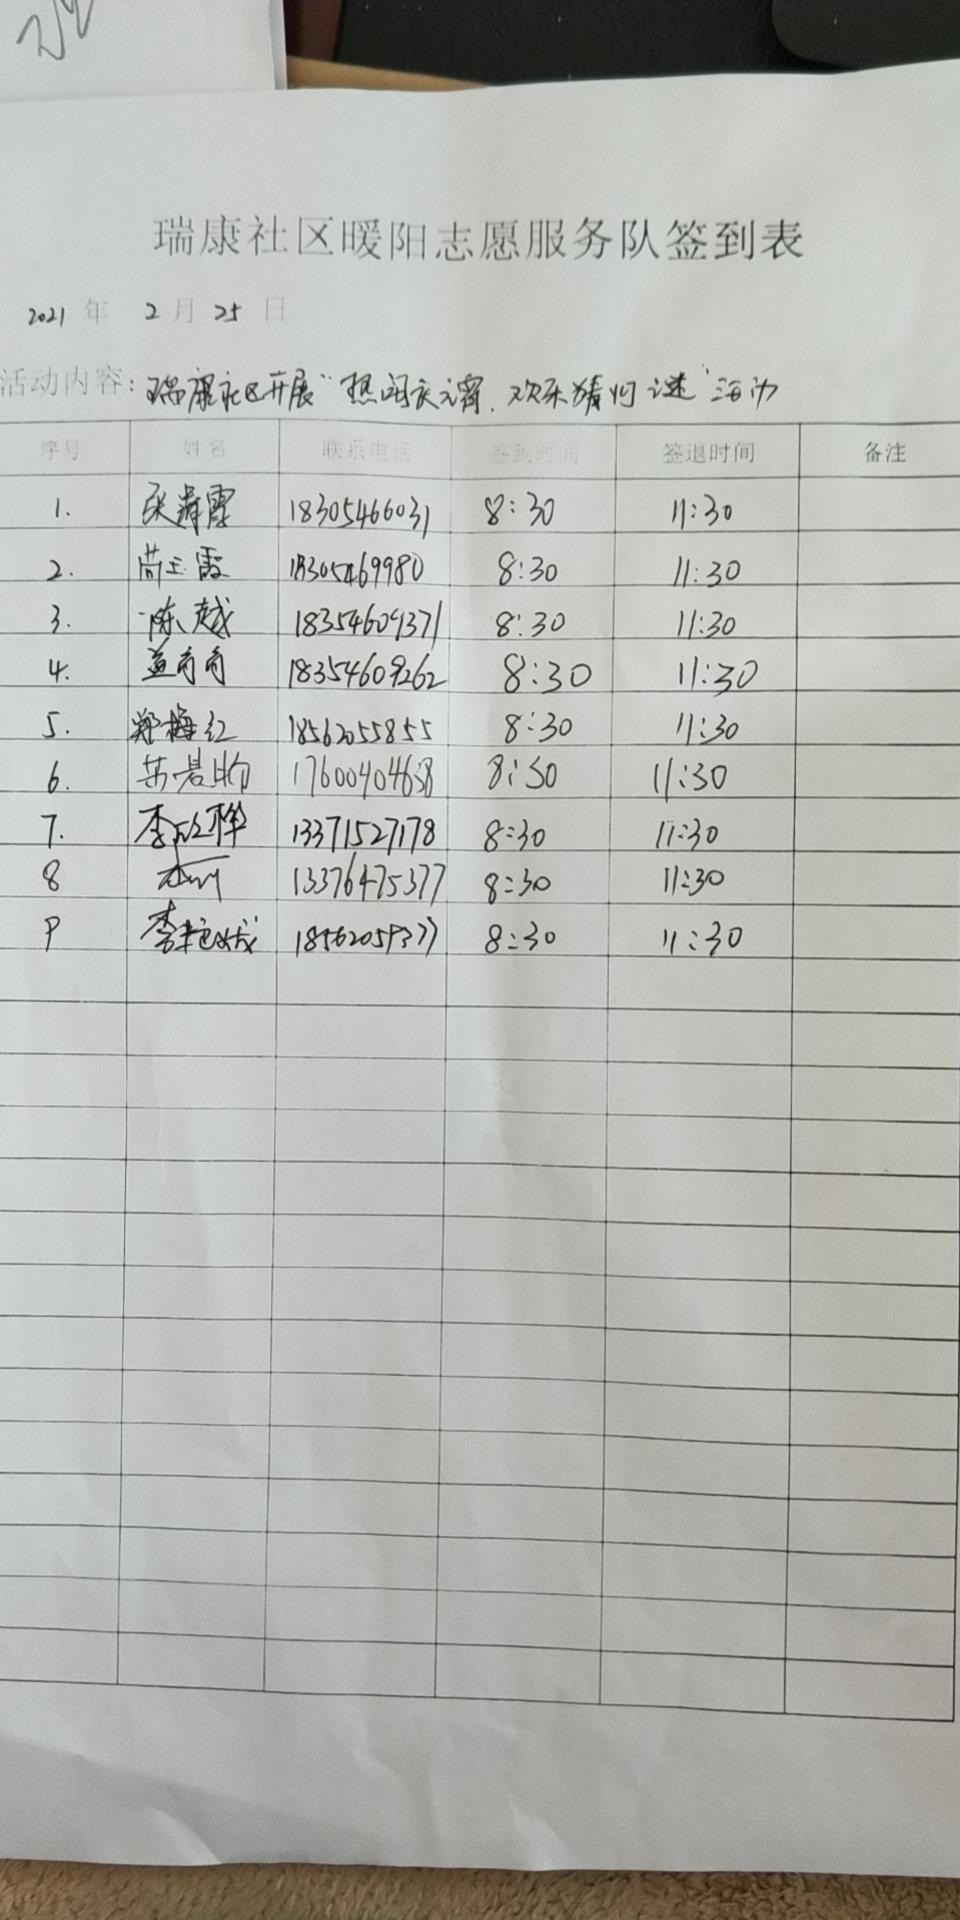 瑞康社区暖阳志愿服务队签到表
2021 年 2 月 25 日
活动内容：瑞康社区开展"热闹庆元宵，欢乐猜灯谜"活动
序号 姓名 联系电话 签到时间 签退时间 备注
1. 18305466031 8:30 11:30
2. 18305469980 8:30 11:30
3. 陈越 18354609371 8:30 11:30
4. 盖奇奇 18354609262 8:30 11:30
5. 郑梅红 18562055855 8:30 11:30
6. 17600404638 8:30 11:30
7. 李欣桦 13371527178 8:30 11:30
8 13376475377 8:30 11:30
9 李艳 8:30 11:30